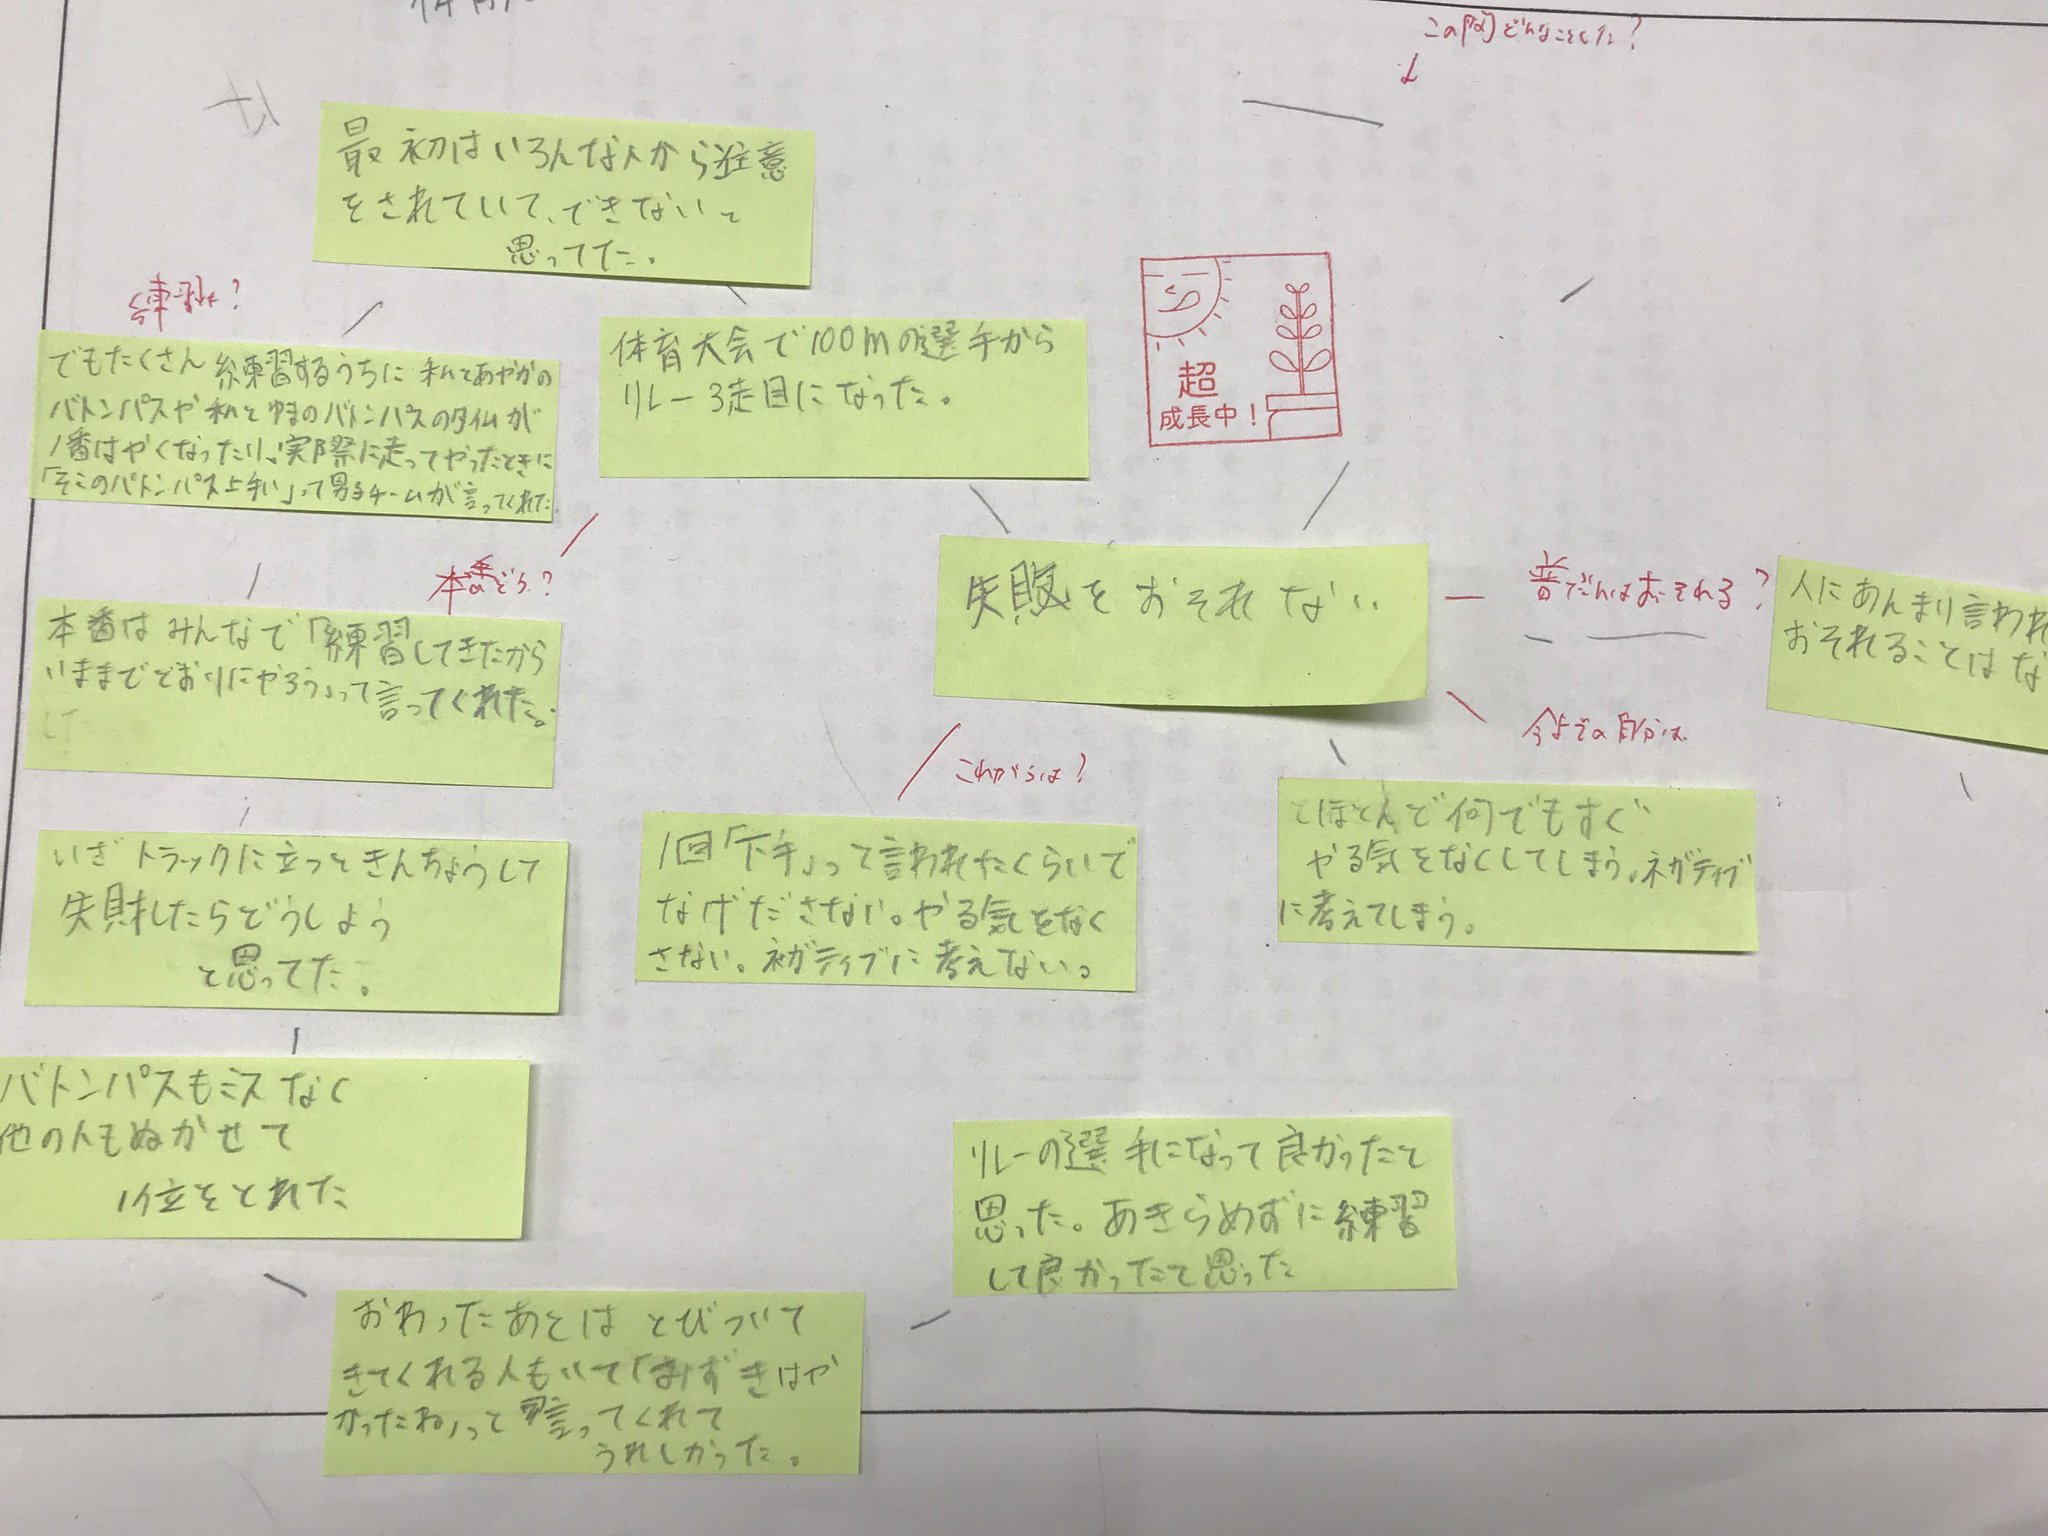 この間どんなことした?
↓
最初はいろんな人から注意
をされていて、できないと
思ってた。
練習は?
でもたくさん練習するうちに私とあやかの
バトンパスや私とゆまのバトンパスのタイムが
1番はやくなったり、実際に走ってやったときに
「そこのバトンパス上手い」って男子チームが言ってくれた。
体育大会で100mの選手から
リレー3走目になった。
超
成長中!
本番どう?
本番はみんなで「練習してきたから
いままでどおりにやろう」って言ってくれた。
失敗をおそれない
普だんはおそれる?
人にあんまり言われ
おそれることはな
今までの自分は
これからは?
いざトラックに立つときんちょうして
失敗したらどうしよう
と思ってた。
1回「下手」って言われたくらいで
なげださない。やる気をなく
さない。ネガティブに考えない。
ほとんど何でもすぐ
やる気をなくしてしまう。ネガティブ
に考えてしまう。
バトンパスもミスなく
他の人もぬかせて
1位をとれた
リレーの選手になって良かったと
思った。あきらめずに練習
して良かったと思った
おわったあとはとびついて
きてくれる人もいて「みずきはや
かったね」って言ってくれて
うれしかった。